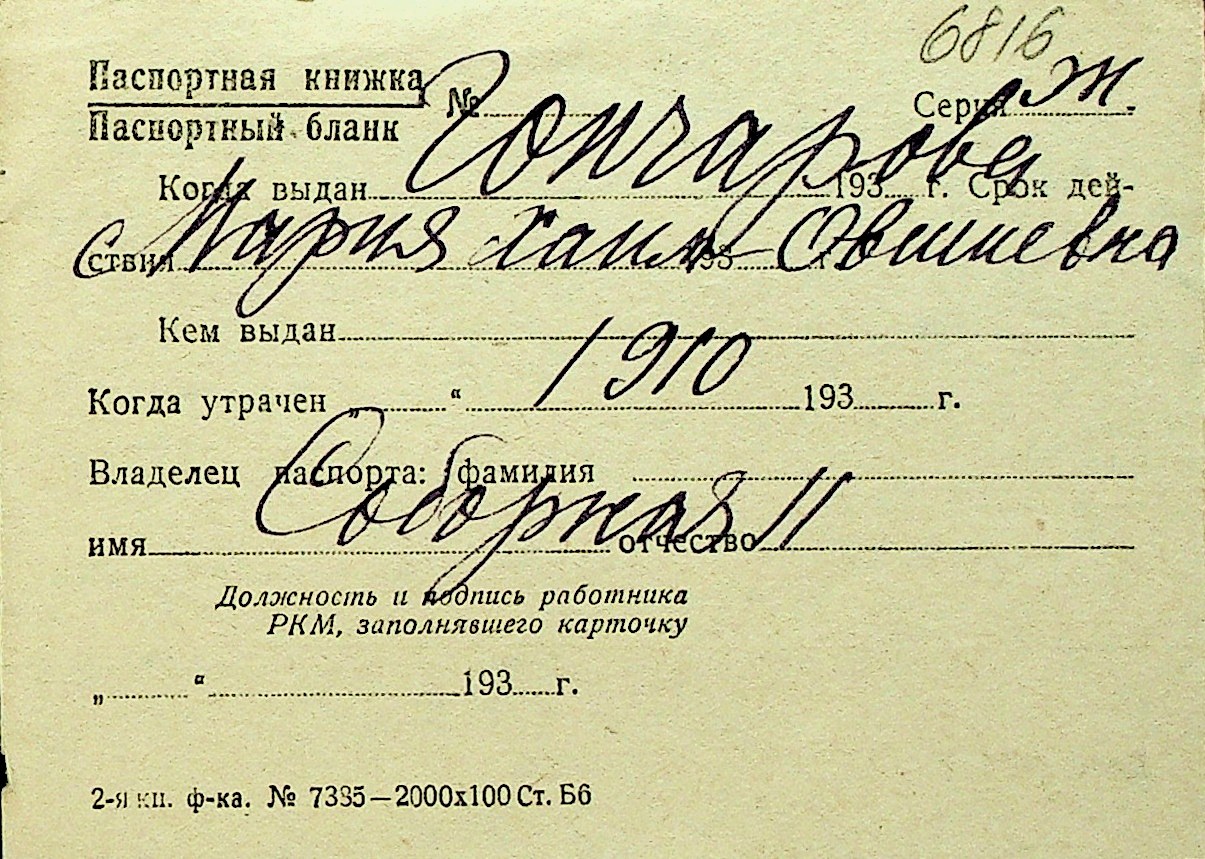 6816
Паспортная книжка
Паспортный бланк № Серия т
Гончарова
Когда выдан 193 г. Срок дей-
ствия 193
Мария Хаим-Овшиевна
Кем выдан
1910
Когда утрачен „ “ 193 г.
Владелец паспорта: фамилия
Соборная 11
имя отчество
Должность и подпись работника
РКМ, заполнявшего карточку
„ “ 193 г.
2-я кн. ф-ка. № 7335—2000х100 Ст. Б6